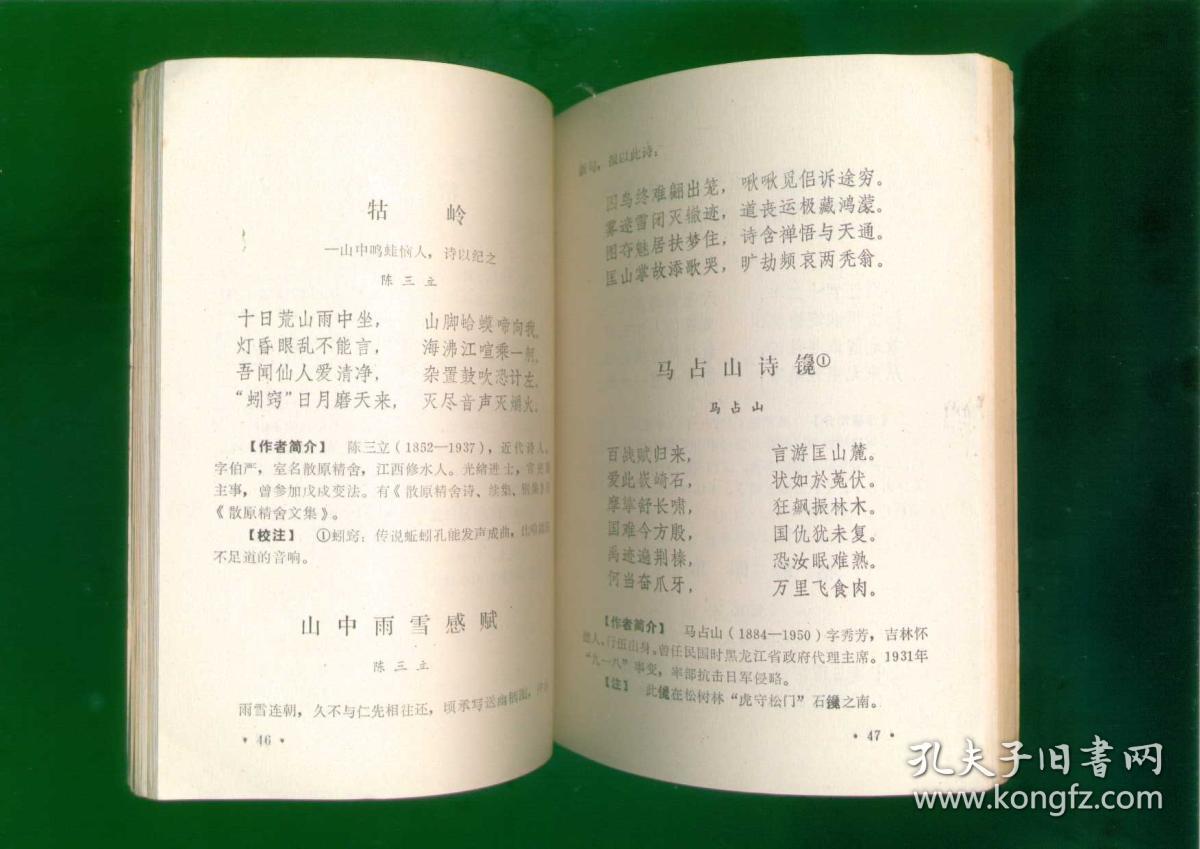 牯 岭
—山中鸣蛙恼人，诗以纪之
陈 三 立
十日荒山雨中坐， 山脚蛤蟆啼向我。
灯昏眼乱不能言， 海沸江喧乘一舸。
吾闻仙人爱清净， 杂置鼓吹恐计左。
“蚓窍”日月磨天来， 灭尽音声灭爝火。
【作者简介】 陈三立（1852—1937），近代诗人。
字伯严，室名散原精舍，江西修水人。光绪进士，官吏部
主事，曾参加戊戌变法。有《散原精舍诗、续集、别集》
《散原精舍文集》。
【校注】 ①蚓窍：传说蚯蚓孔能发声成曲，比喻
不足道的音响。
山中雨雪感赋
陈 三 立
雨雪连朝，久不与仁先相往还，顷承写送幽栖图，
• 46 •
新句，报以此诗：
囚鸟终难翩出笼， 啾啾觅侣诉途穷。
雾迹雪闭灭辙迹， 道丧运极藏鸿蒙。
图夺魅居扶梦住， 诗含禅悟与天通。
匡山掌故添歌哭， 旷劫频哀两秃翁。
马占山诗镵①
马占山
百战赋归来， 言游匡山麓。
爱此嵚崎石， 状如於菟伏。
摩挲舒长啸， 狂飙振林木。
国难今方殷， 国仇犹未复。
禹迹遍荆榛， 恐汝眠难熟。
何当奋爪牙， 万里飞食肉。
【作者简介】 马占山（1884—1950）字秀芳，吉林怀
德人。行伍出身。曾任民国时黑龙江省政府代理主席。1931年
“九一八”事变，率部抗击日军侵略。
【注】 此镵在松树林“虎守松门”石镵之南。
• 47 •
孔夫子旧书网
www.kongfz.com